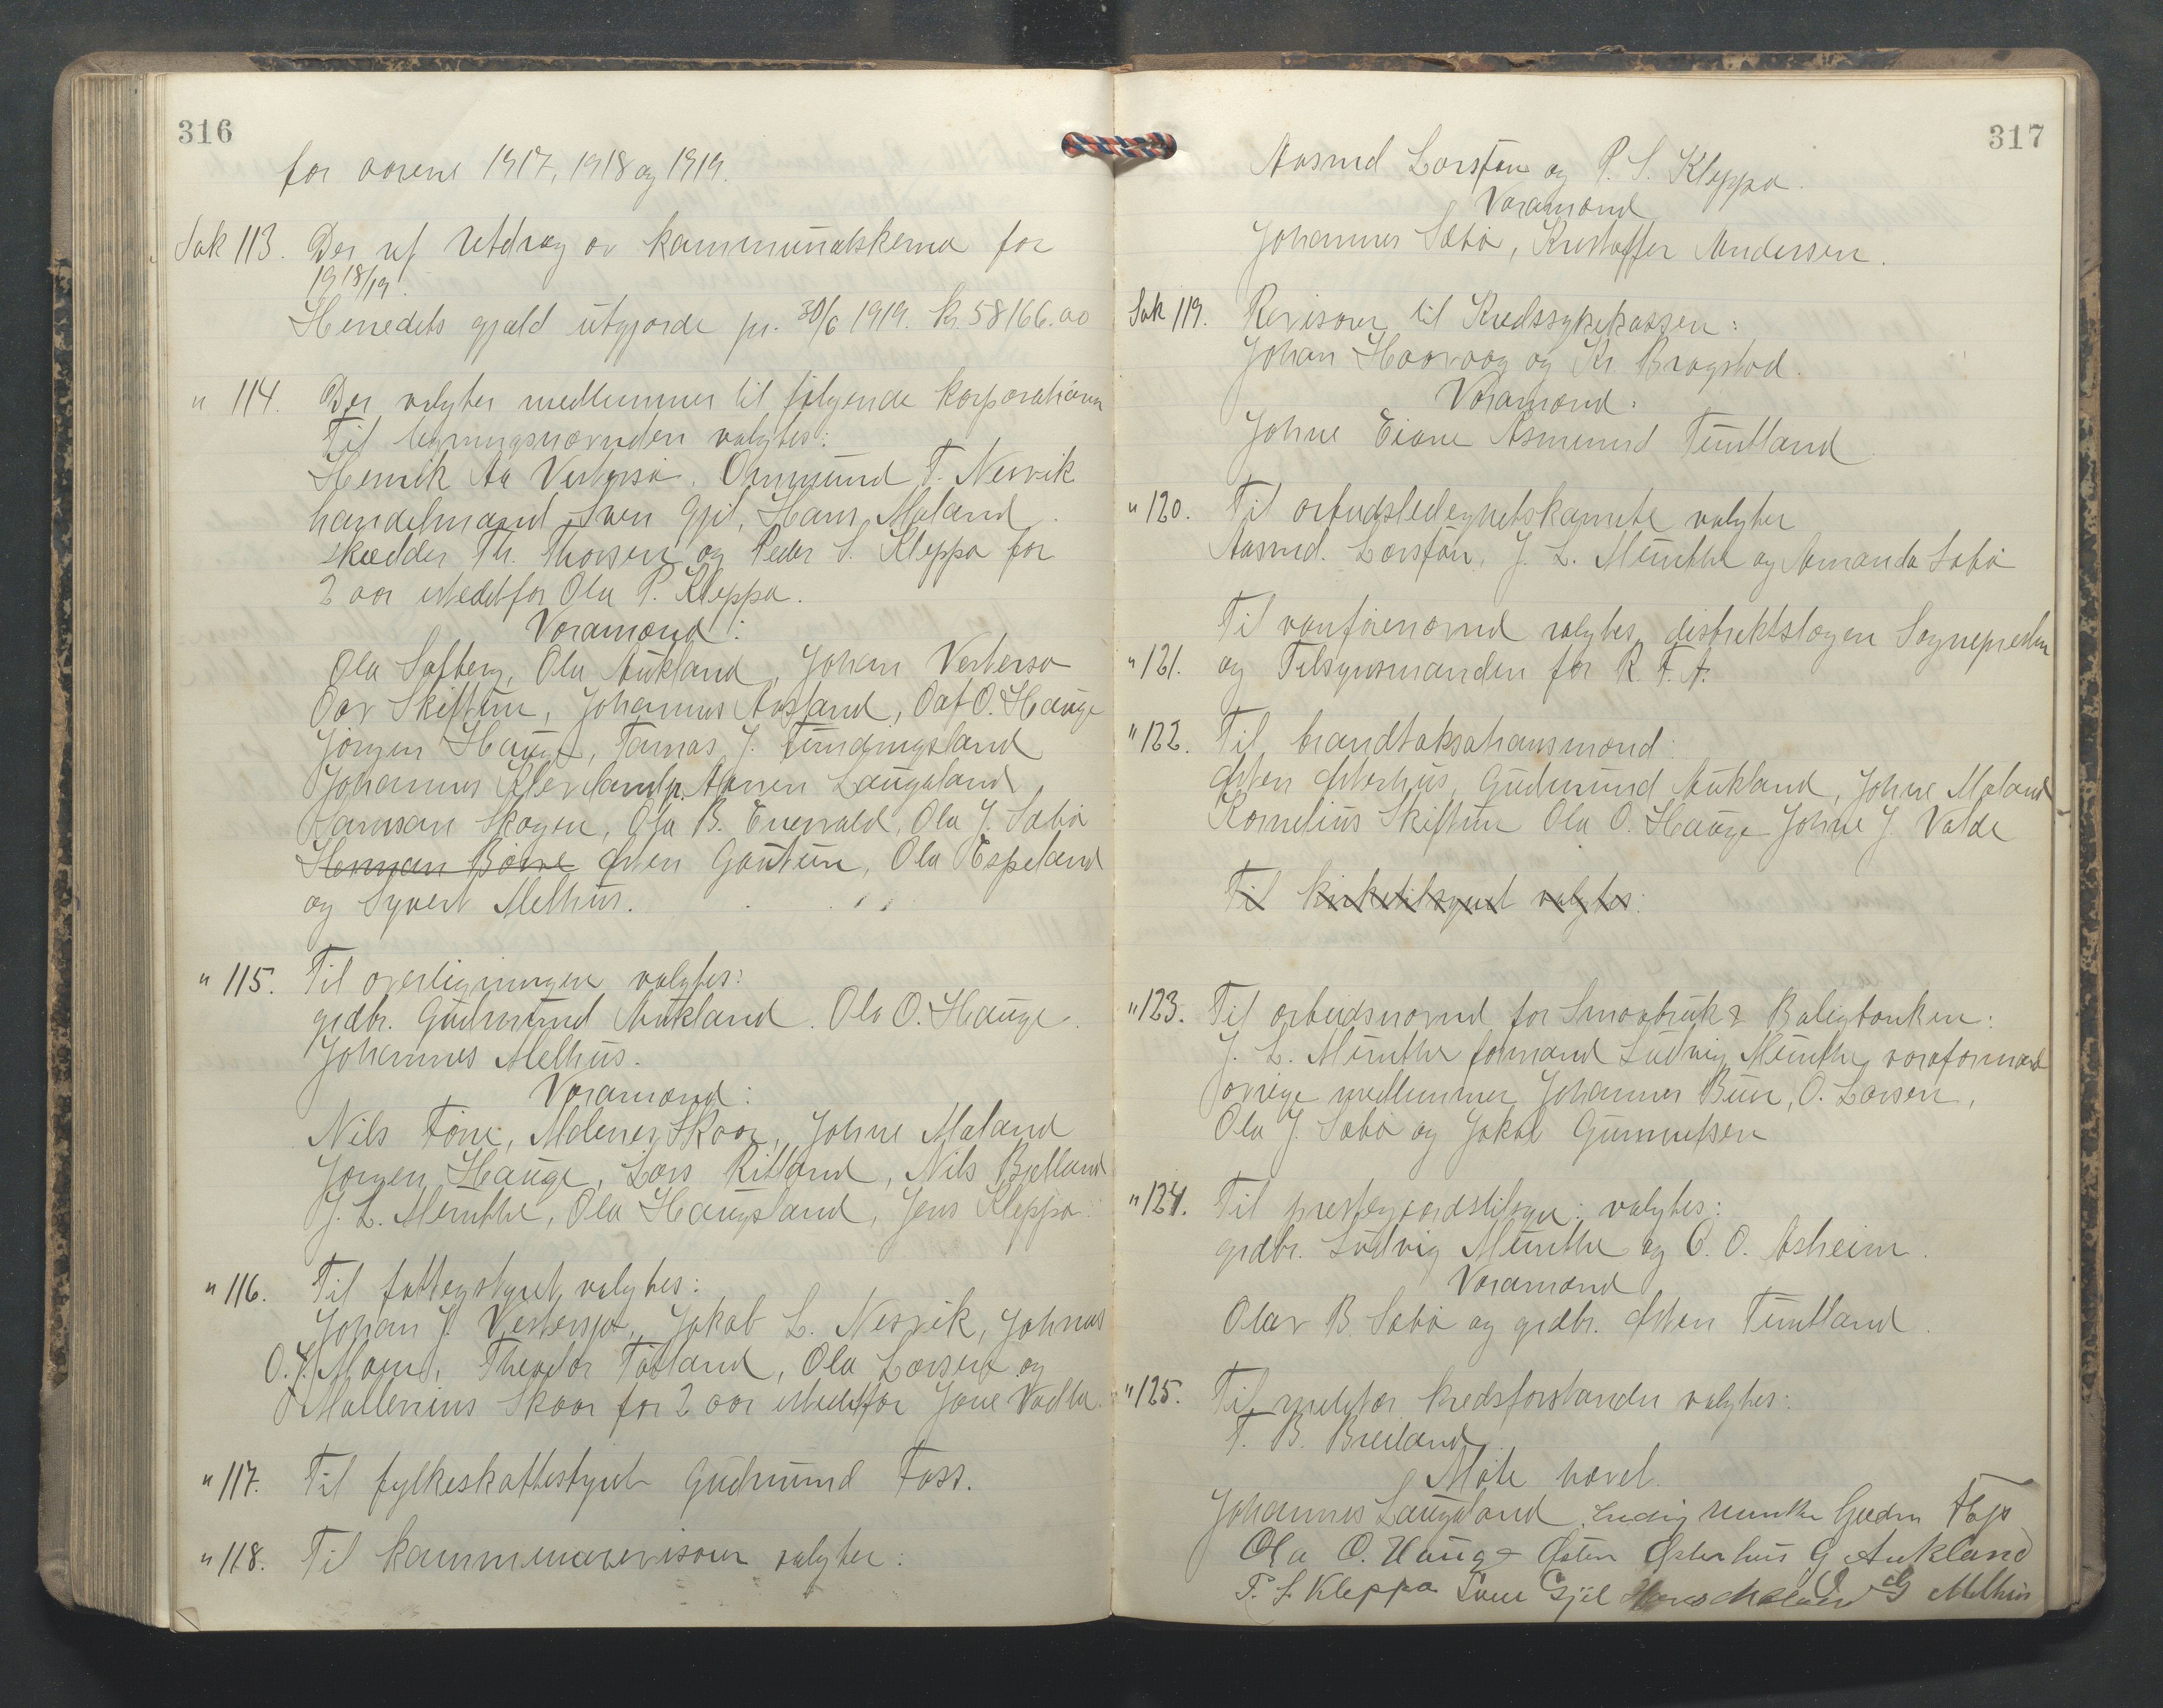 316
for aarene 1917, 1918 og 1919.
Sak 113. Der ref utdrag av kommunalskema for
1918/19.
Herredets gjæld utgjorde pr. 30/6 1919. kr. 58166.00
" 114. Der valgtes medlemmer til følgende korporationer
Til ligningsnævnden valgtes:
Henrik Aa Vestersjø. Ommund T. Nesvik
handelmand Sven Gjil, Hans Mæland
skrædder Th. Thorsen og Peder S. Kleppa for
2 aar istedetfor Ola P. Kleppa.
Varamænd:
Ola Løfberg, Ola Aukland, Johan Vestersø
Oav Skiftun, Johannes Aasland, Oaf O. Hauge
Jørgen Hauge, Tamas J. Tendingsland
Johannes Klevland, Aanen Laugaland
Samson Skogen, Ola B. Enevald, Ola J. Sæbø
Herman Børve Østen Gautun, Ola Espeland
og Syvert Melhus.
" 115. Til overligningen valgtes:
grdbr. Gudmund Aukland. Ola O. Hauge.
Johannes Melhus.
Varamænd:
Nils Føne, Malenes Skaar, Johne Maland
Jørgen Hauge, Lars Ritland, Nils Bjelland
J. L. Munthe, Ola Haugsland, Jens Kleppa.
" 116. Til fattigstyret valgtes:
Johan J. Vestersjø, Jakob L. Nesvik, Johnas
O. J. Moen, Theodor Tøtland, Ola Larsen og
Mallenius Skaar for 2 aar istedetfor Jone Vadla.
" 117. Til fylkeskattestyret Gudmund Foss.
" 118. Til kommunerevisorer valgtes:
317
Aasmd Larsson og P. S. Kleppa.
Varamænd
Johannes Sæbø, Kristoffer Andersen.
Sak 119. Revisorer til Kredssykekassen:
Johan Haavaag og Kr. Bragstad.
Varamænd:
Johne Eiane Asmund Tuntland
" 120. Til arbeidsledighetskomite valgtes
Aasmd. Larsson, J. L. Munthe og Amanda Sæbø
Til vanførenævnd valgtes distriktslægen Sognepresten
" 121. og Tilsynsmanden for R. T. A.
" 122. Til brandtaksationsmænd:
Østen Østerhus, Gudmund Aukland, Johne Maland
Kornelius Skiftun Ola O. Hauge Johne J. Valde
Til kirketilsynet valgtes:
" 123. Til arbeidsnævnd for Smaabruk & Boligbanken:
J. L. Munthe formand Ludvig Munthe varaformand
øvrige medlemmer Johannes Buer, O. Larsen,
Ola J. Sæbø og Jakob Gunnufsen
" 124. Til prestegaardstilsyn: valgtes:
grdbr. Ludvig Munthe og O. O. Asheim.
Varamænd
Olav B. Sæbø og grdbr. Østen Tuntland.
" 125. Til militær kredsforstander valgtes:
T. B. Breiland
Møte hævet.
Johannes Laugaland Ludvig Munthe Gudm Foss
Ola O. Hauge Østen Østerhus G Aukland
P. S. Kleppa Sven Gjil Hans Mæland J G Melhus